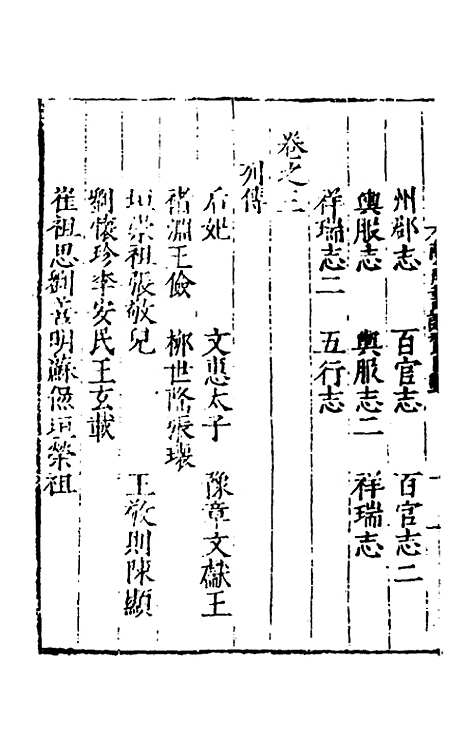 州郡志 百官志 百官志二
輿服志 輿服志二 祥瑞志
祥瑞志二 五行志
卷之三
列傳
后妃 文惠太子 豫章文獻王
褚淵王儉 柳世隆張瓌
垣崇祖張敬兒 王敬則陳顯
劉懷珍李安民王玄載
崔祖思劉善明蘇侃垣榮祖